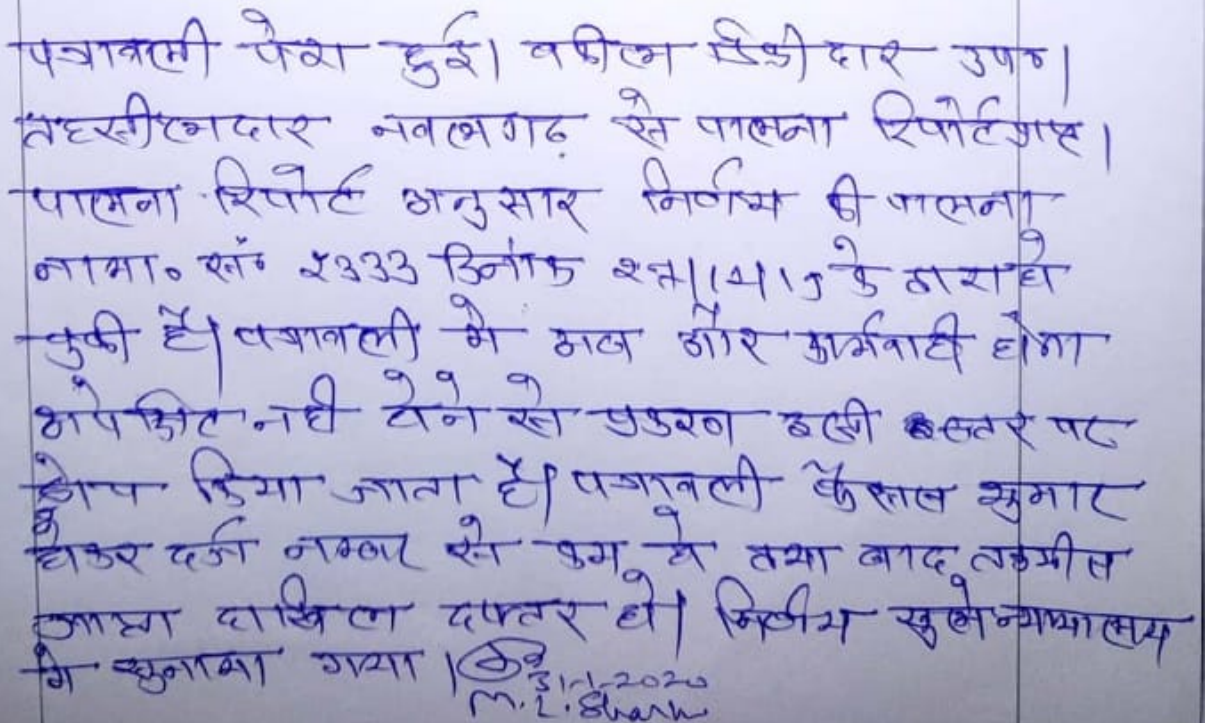 पत्रावली पेश हुई। वकील डिक्रीदार उप०।
तहसीलदार नवलगढ़ से पालना रिपोर्ट प्राप्त।
पालना रिपोर्ट अनुसार निर्णय की पालना
नामा० सं० 2333 दिनांक के द्वारा हो
चुकी है। पत्रावली मे अब और कार्यवाही होना
अपेक्षित नही होने से प्रकरण इसी स्तर पर
ड्रोप किया जाता है। पत्रावली फैसल शुमार
होकर दर्ज नम्बर से कम हो तथा बाद तकमील
जाप्ता दाखिल दफ्तर हो। निर्णय खुले न्यायालय
मे सुनाया गया।
31-1-2020
M.L. Sharma